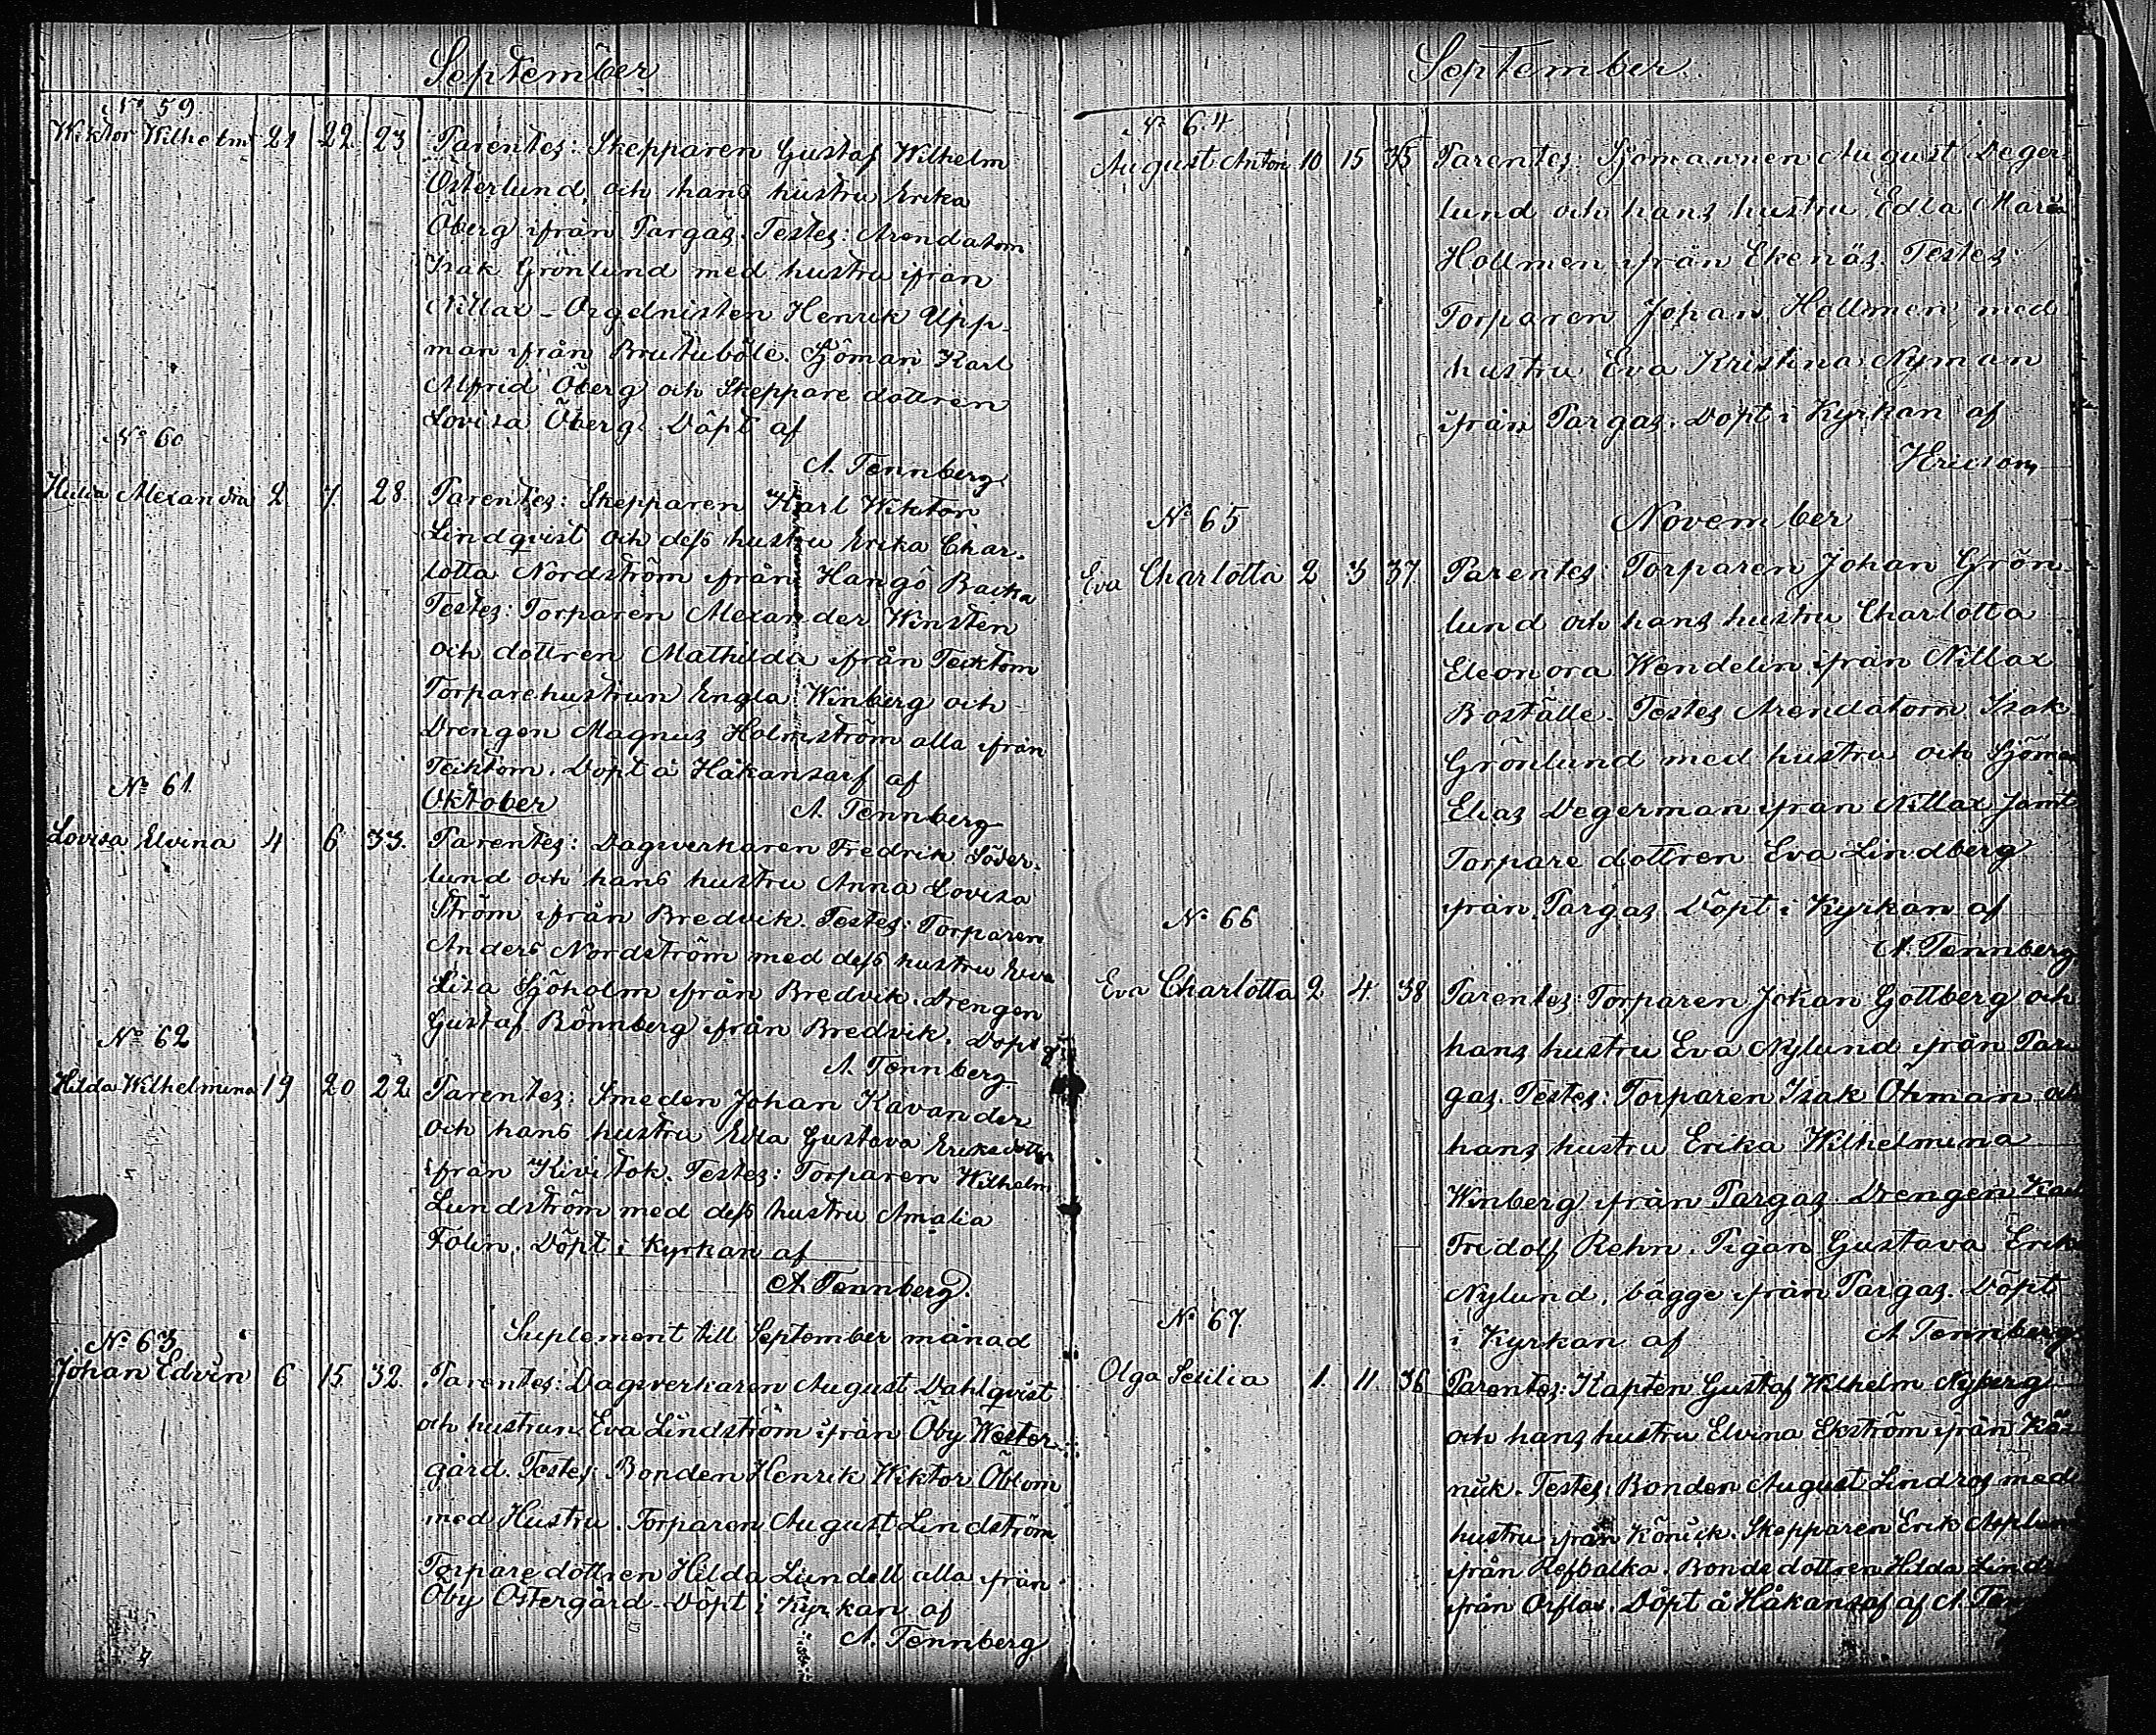 September
No 59.
Wiktor Wilhelm 21 22 23 Parentes: Skepparen Gustaf Wilhelm
Österlund och hans hustru Erika
Öberg ifrån Pargas. Testes: Arendatorn
Isak Grönlund med hustru ifrån
Nillax - Orgelnisten Henrik Upp-
man ifrån Brutuböle. Sjöman Karl
Alfrid Öberg och Skeppare dottren
Lovisa Öberg. Döpt af
A. Tennberg
No 60
Hulda Alexandra 2 7. 28. Parentes: Skepparen Karl Wiktor
Lindqvist och dess hustru Erika Char-
lotta Nordström ifrån Hangö Backa
Testes: Torparen Alexander Winsten
och dottren Mathilda ifrån Tecktom
Torparehustrun Engla Winberg och
Drengen Magnus Holmström alla ifrån
Tecktom. Döpt å Håkansarf af
A. Tennberg
Oktober
No 61
Lovisa Elvina 4 6 33. Parentes: Dagsverkaren Fredrik Söder-
lund och hans hustru Anna Lovisa
Ström ifrån Bredvik. Testes: Torparen
Anders Nordström med dess hustru Eva
Lisa Sjöholm ifrån Bredvik. Drengen
Gustaf Rönnberg ifrån Bredvik. Döpt af
A. Tennberg
No 62
Hilda Wilhelmina 19 20 22 Parentes: Smeden Johan Kavander
och hans hustru Edla Gustava Eriksdotter
ifrån Kivitok. Testes: Torparen Wilhelm
Lundström med dess hustru Amalia
Folin. Döpt i Kyrkan af
A. Tennberg.
Suplement till September månad
No 63
Johan Edvin 6 15 32. Parentes: Dagsverkaren August Dahlqvist
och hustrun Eva Lindström ifrån Öby Wester-
gård. Testes: Bonden Henrik Wiktor Öblom
med Hustru. Torparen August Lindström
Torpare dottren Hilda Lundell alla ifrån
Öby Östergård. Döpt i Kyrkan af
A. Tennberg
September.
No 64
August Anton 10 15 35 Parentes: Sjömannen August Deger-
lund och hans hustru Edla Maria
Hollmen ifrån Ekenäs. Testes:
Torparen Johan Hollmen med
hustru Eva Kristina Nyman
ifrån Pargas. Döpt i Kyrkan af
HEricson
November
No 65
Eva Charlotta 2 3 37 Parentes: Torparen Johan Grön-
lund och hans hustru Charlotta
Eleonora Wendelin ifrån Nillax
Boställe. Testes Arendatorn Isak
Grönlund med hustru och Sjöman
Elias Degerman ifrån Nillax samt
Torpare dottren Eva Lindberg
ifrån Pargas. Döpt i Kyrkan af
A. Tennberg
No 66
Eva Charlotta 2 4 38 Parentes: Torparen Johan Gottberg och
hans hustru Eva Nylund ifrån Par-
gas. Testes: Torparen Isak Öhman och
hans hustru Erika Wilhelmina
Winberg ifrån Pargas. Drengen Karl
Fridolf Rehn. Pigan Gustava Erika
Nylund, bägge ifrån Pargas. Döpt
i Kyrkan af A Tennberg.
No 67
Olga Sesilia 1. 11. 36 Parentes: Kapten Gustaf Wilhelm Nyberg
och hans hustru Elvina Ekström ifrån Kö-
nick. Testes: Bonden August Lindros med
hustru ifrån Könick. Skepparen Erik Asplund
ifrån Refbacka. Bonde dottren Hilda
ifrån Orflax. Döpt å Håkansaf af A.